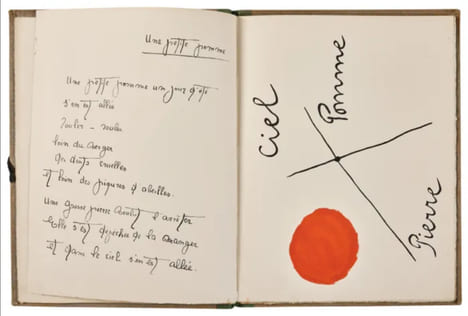 Une petite pomme
Une petite pomme un jour d'été
s'en est allée
loin du verger
des doigts
et loin des piqures d'abeilles.
Une grosse pierre voulut l'arrêter
Elle s'est dépêchée de la manger
et dans le ciel s'en est allée.
Ciel
Pomme
Pierre